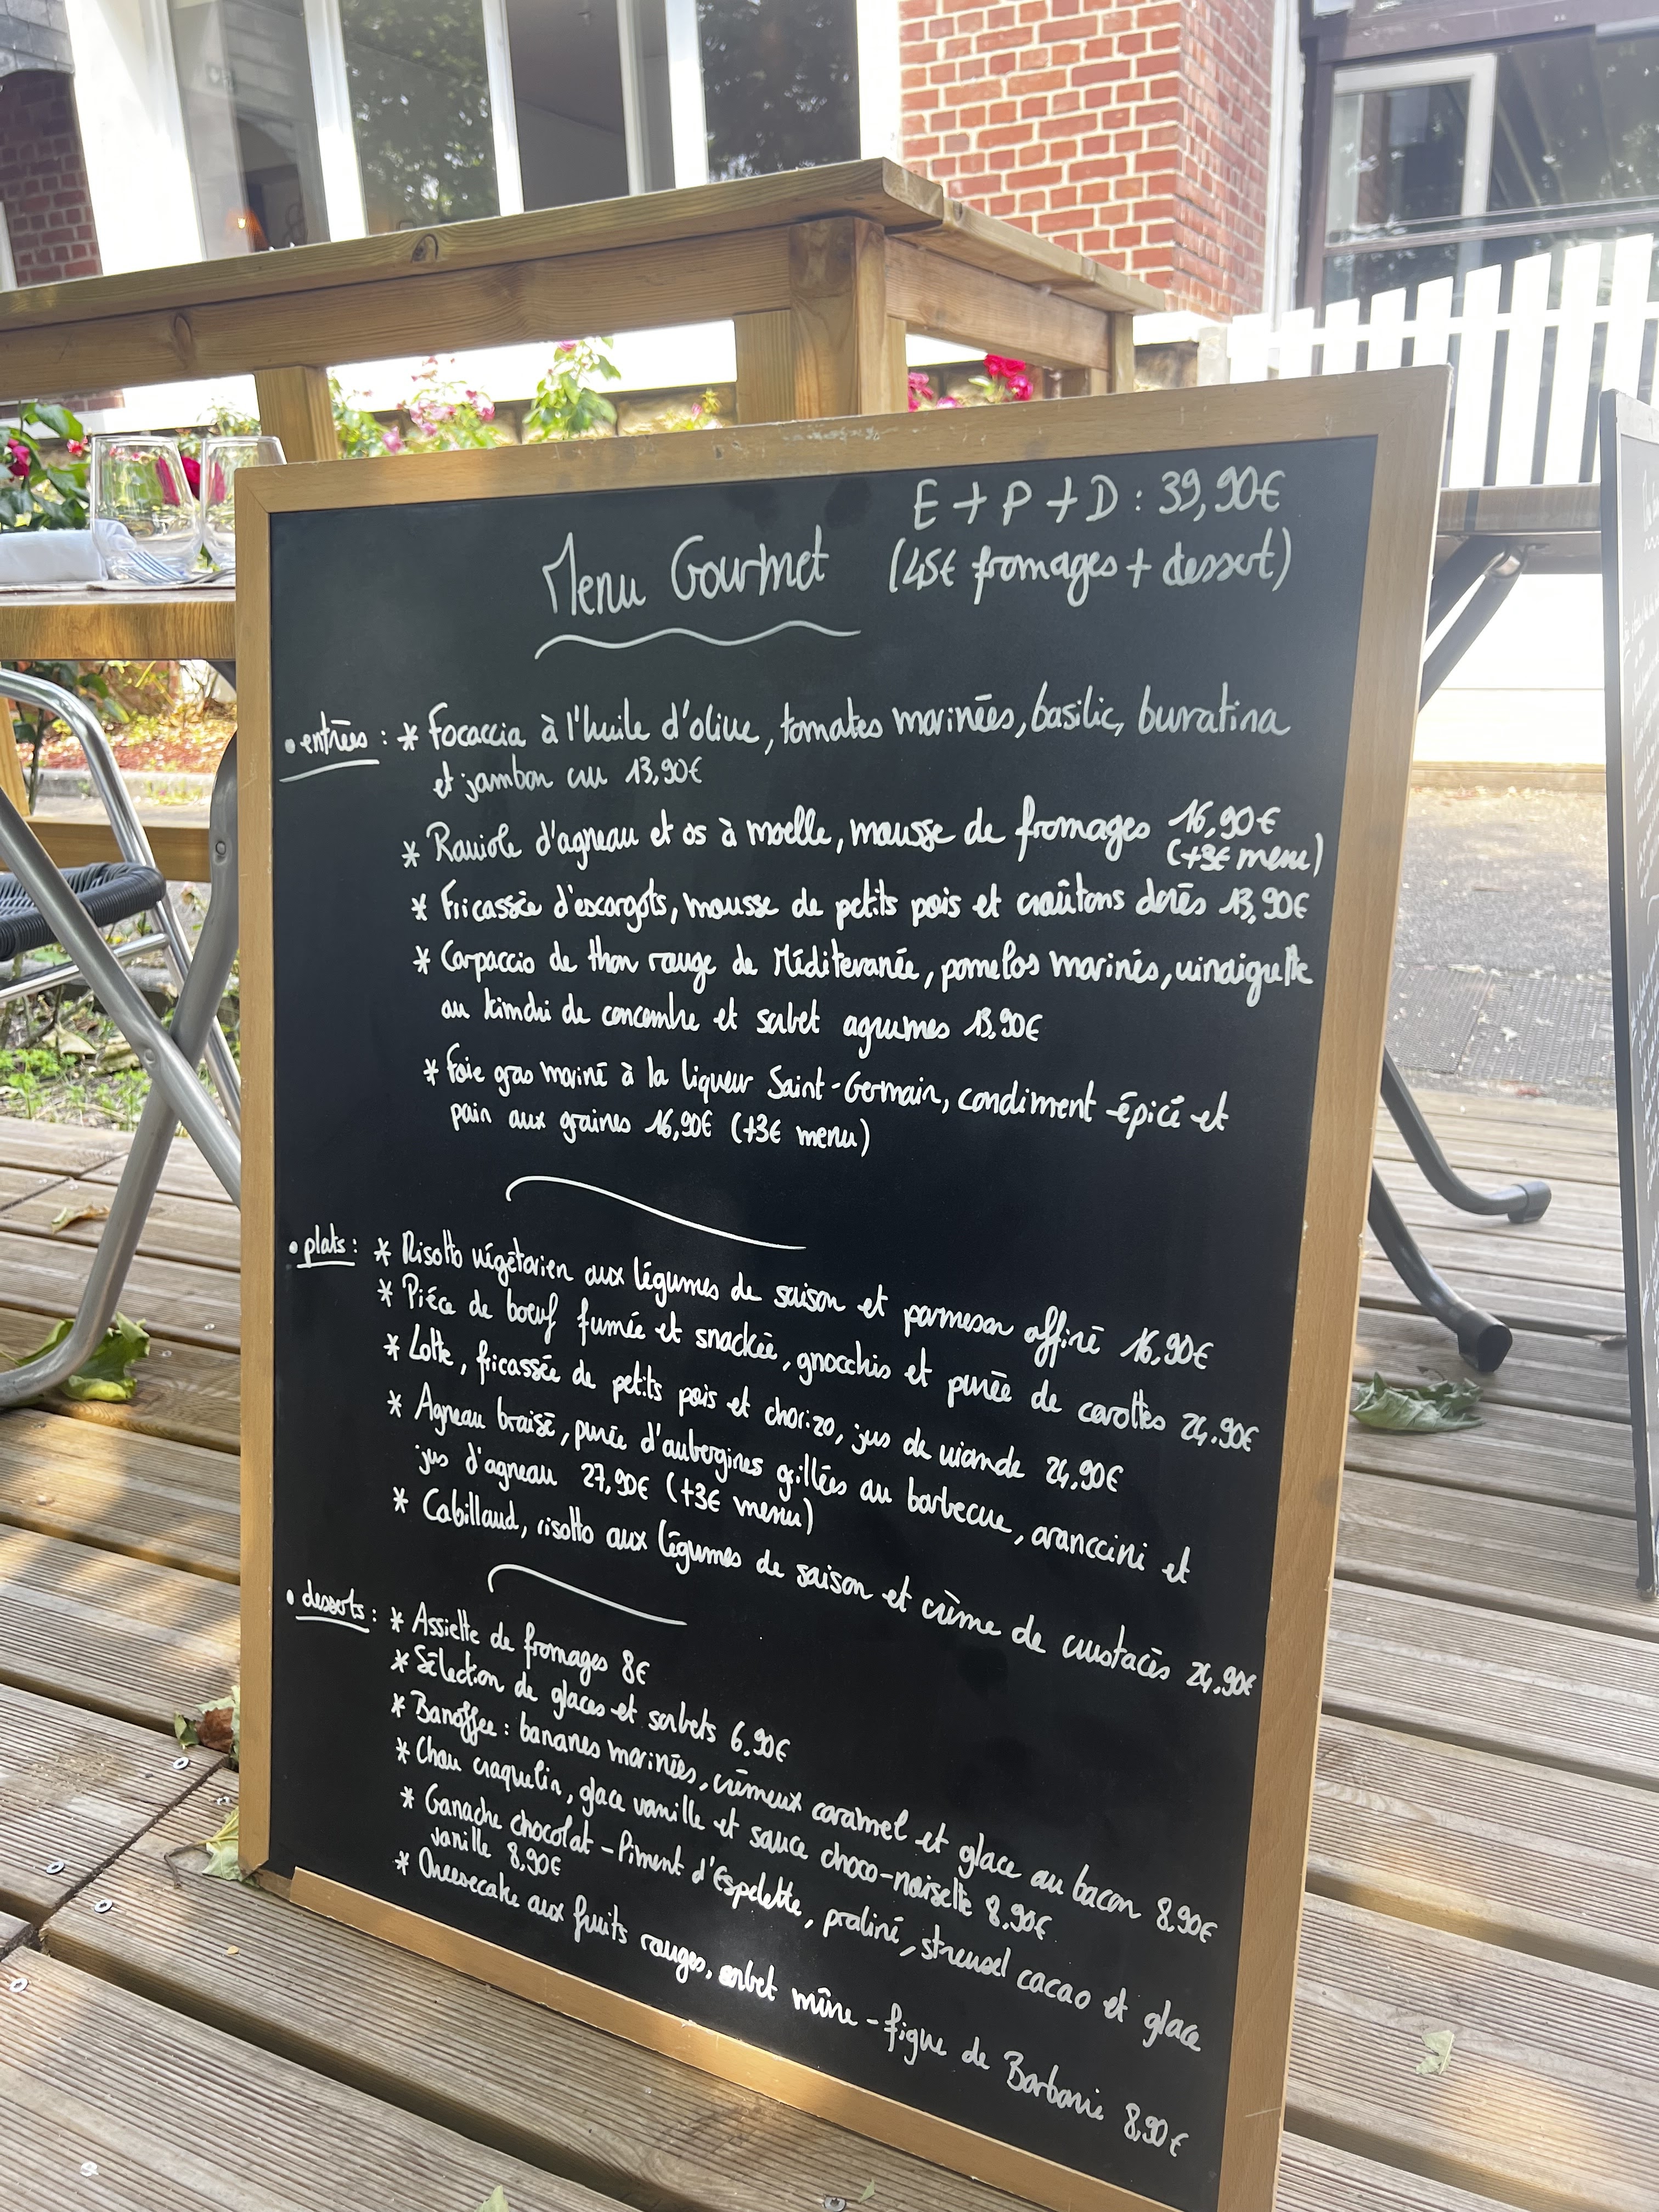 E + P + D : 39,90€
Menu Gourmet (45€ fromages + dessert)
• entrées : * Focaccia à l'huile d'olive, tomates marinées, basilic, buratina
et jambon cru 13,90€
* Raviole d'agneau et os à moelle, mousse de fromages 16,90€
(+3€ menu)
* Fricassée d'escargots, mousse de petits pois et croûtons dorés 13,90€
* Carpaccio de thon rouge de Méditeranée, pomelos marinés, vinaigrette
au kimchi de concombre et sorbet agrumes 13,90€
* Foie gras mariné à la liqueur Saint-Germain, condiment épicé et
pain aux graines 16,90€ (+3€ menu)
• plats : * Risotto végétarien aux légumes de saison et parmesan affiné 16,90€
* Piéce de boeuf fumée et snackée, gnocchis et purée de carottes 24.90€
* Lotte, fricassée de petits pois et chorizo, jus de viande 24,90€
* Agneau braisé, purée d'aubergines grillées au barbecue, aranccini et
jus d'agneau 27,90€ (+3€ menu)
* Cabillaud, risotto aux légumes de saison et crème de crustacés 24.90€
• desserts : * Assiette de fromages 8€
* Sélection de glaces et sorbets 6.90€
* Banoffee : bananes marinées, crémeux caramel et glace au bacon 8.90€
* Chou craquelin, glace vanille et sauce choco-noisette 8.90€
* Ganache chocolat - Piment d'Espelette, praliné, streusel cacao et glace
vanille 8,90€
* Cheesecake aux fruits rouges, sorbet mûre - figue de Barbarie 8,90€